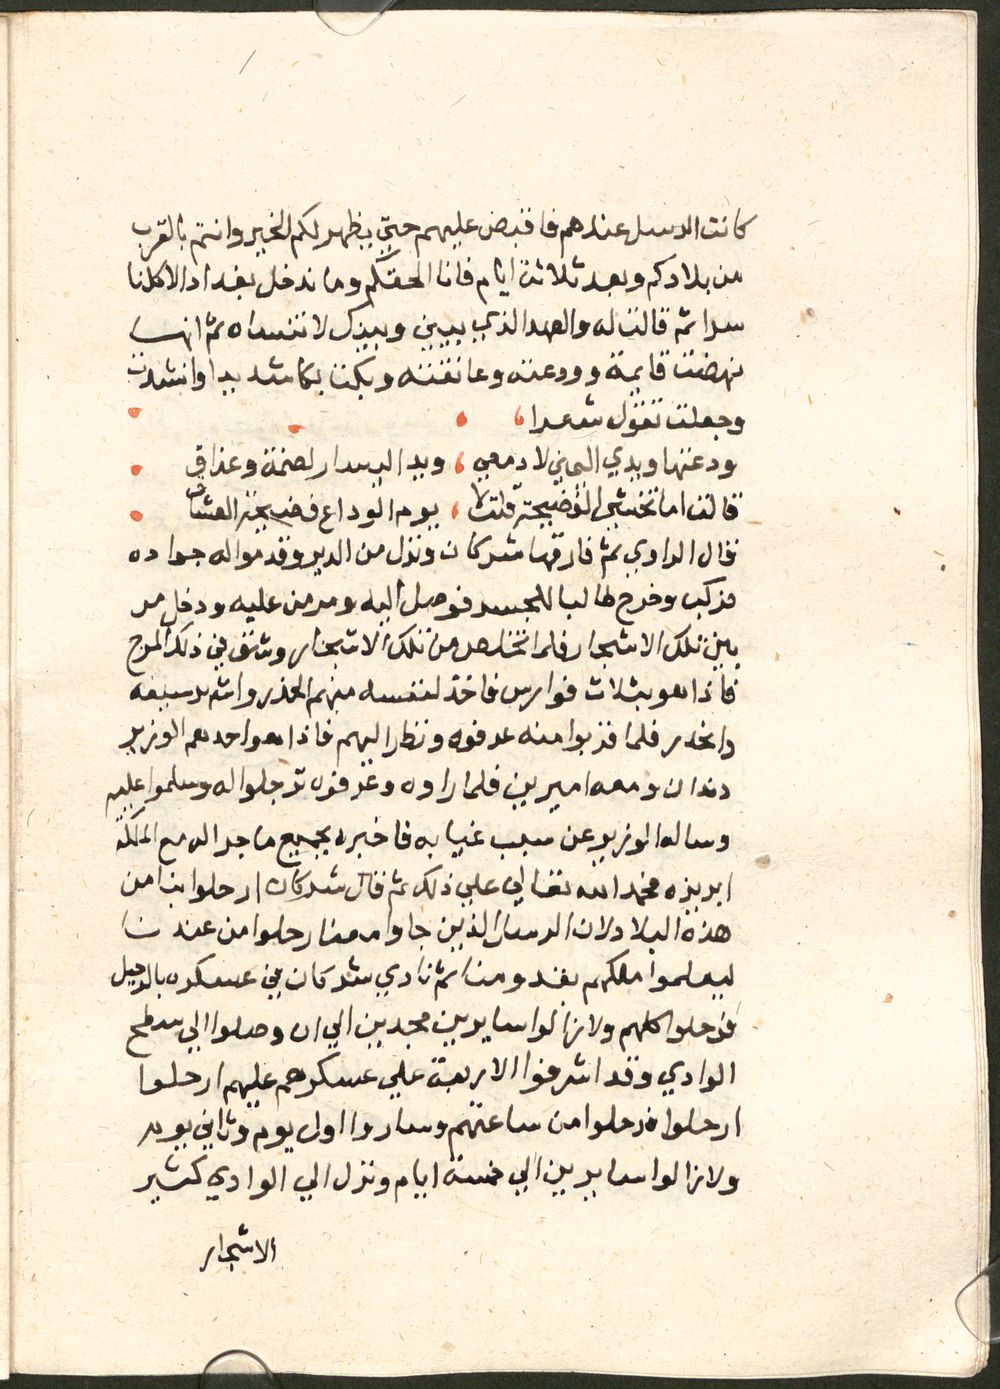 كانت الرسل عندهم فاقبض عليهم حتي يظهر لكم الخبر وانتم بالقرب
من بلادكم وبعد ثلاثة ايام فانا الحقكم وما ندخل بغداد الا كلنا
سوا ثم قالت له والعهد الذي بيني وبينك لا تنساه ثم انها
نهضت قايمة وودعته وعانقته وبكت بكا شديدا وانشدت
وجعلت تقول شعرا
ودعتها ويدي اليمني لادمعي ويد اليسار لضمة وعناق
قالت اما تخشي الفضيحة قلت لا يوم الوداع فضيحة العشاق
قال الراوي ثم فارقها شركان ونزل من الدير وقدموا له جواده
فركب وخرج طالبا للجسر فوصل اليه ومر من عليه ودخل من
بين تلك الاشجار فلما تخلص من تلك الاشجار وشق في ذلك المرج
فاذا هو بثلاث فوارس فاخذ لنفسه منهم الحذر واشهر سيفه
وانحدر فلما قربوا منه عرفوه ونظر اليهم فاذا هو احدهم الوزير
دندان ومعه اميرين فلما راوه وعرفوه ترجلوا له وسلموا عليه
وساله الوزير عن سبب غيابه فاخبره بجميع ما جرا له مع الملكة
ابريزه فحمد الله تعالي علي ذلك ثم قال شركان ارحلوا بنا من
هذه البلاد لان الرسل الذين جاوا معنا رحلوا من عندنا
ليعلموا ملكهم بقدومنا ثم نادي شركان في عسكره بالرحيل
فرحلوا كلهم ولا زالوا سايرين مجدين الي ان وصلوا الي سطح
الوادي وقد اشرفوا الاربعة علي عسكرهم عليهم ارحلوا
ارحلوا فرحلوا من ساعتهم وساروا اول يوم وثاني يوم
ولا زالوا سايرين الي خمسة ايام ونزل الي الوادي كثير
الاشجار